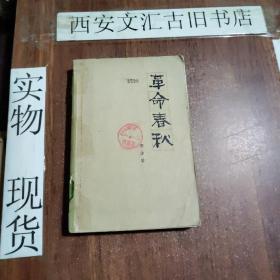 西安文汇古旧书店
实物
现货
革命春秋